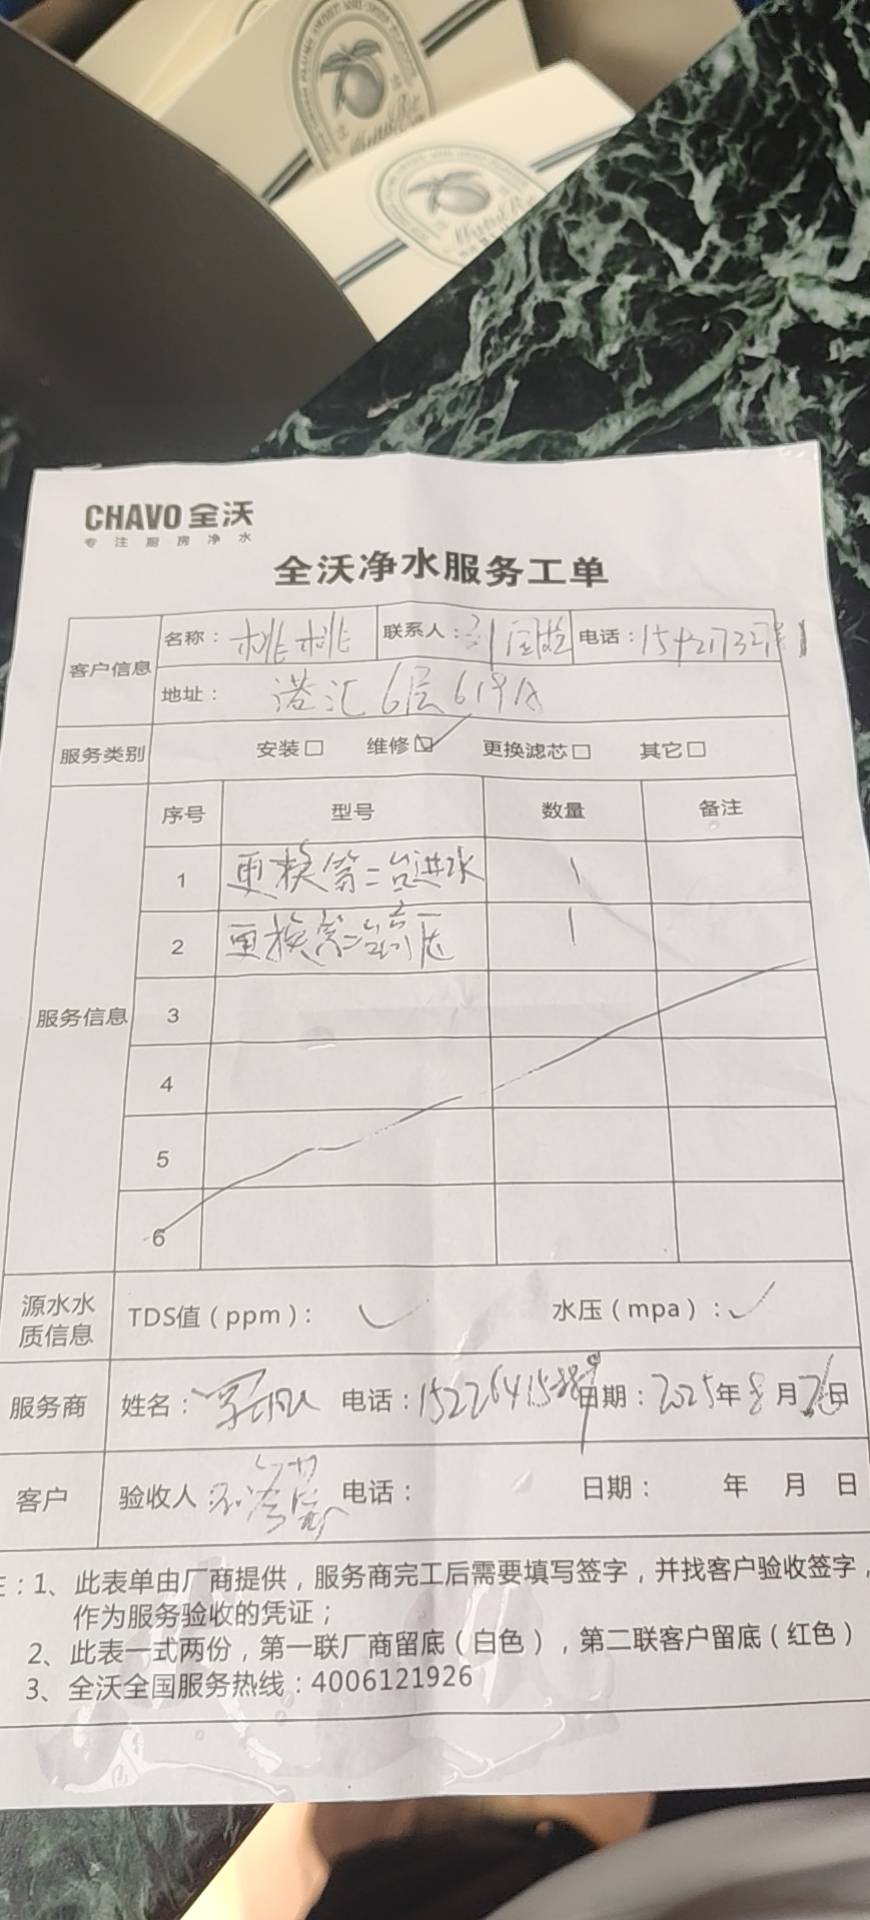 CHAVO 全沃
专注厨房净水
全沃净水服务工单
客户信息
名称： 桃桃 联系人： 电话：
地址： 港汇6层619A
服务类别 安装□ 维修☑ 更换滤芯□ 其它□
服务信息
序号 型号 数量 备注
1 更换第二台进水 1
2 更换第二台高压 1
3
4
5
6
源水水质信息 TDS值（ppm）： ✓ 水压（mpa）：✓
服务商 姓名： 电话： 日期：2025年8月26日
客户 验收人 电话： 日期： 年 月 日
：1、此表单由厂商提供，服务商完工后需要填写签字，并找客户验收签字，
作为服务验收的凭证；
2、此表一式两份，第一联厂商留底（白色），第二联客户留底（红色）
3、全沃全国服务热线：4006121926